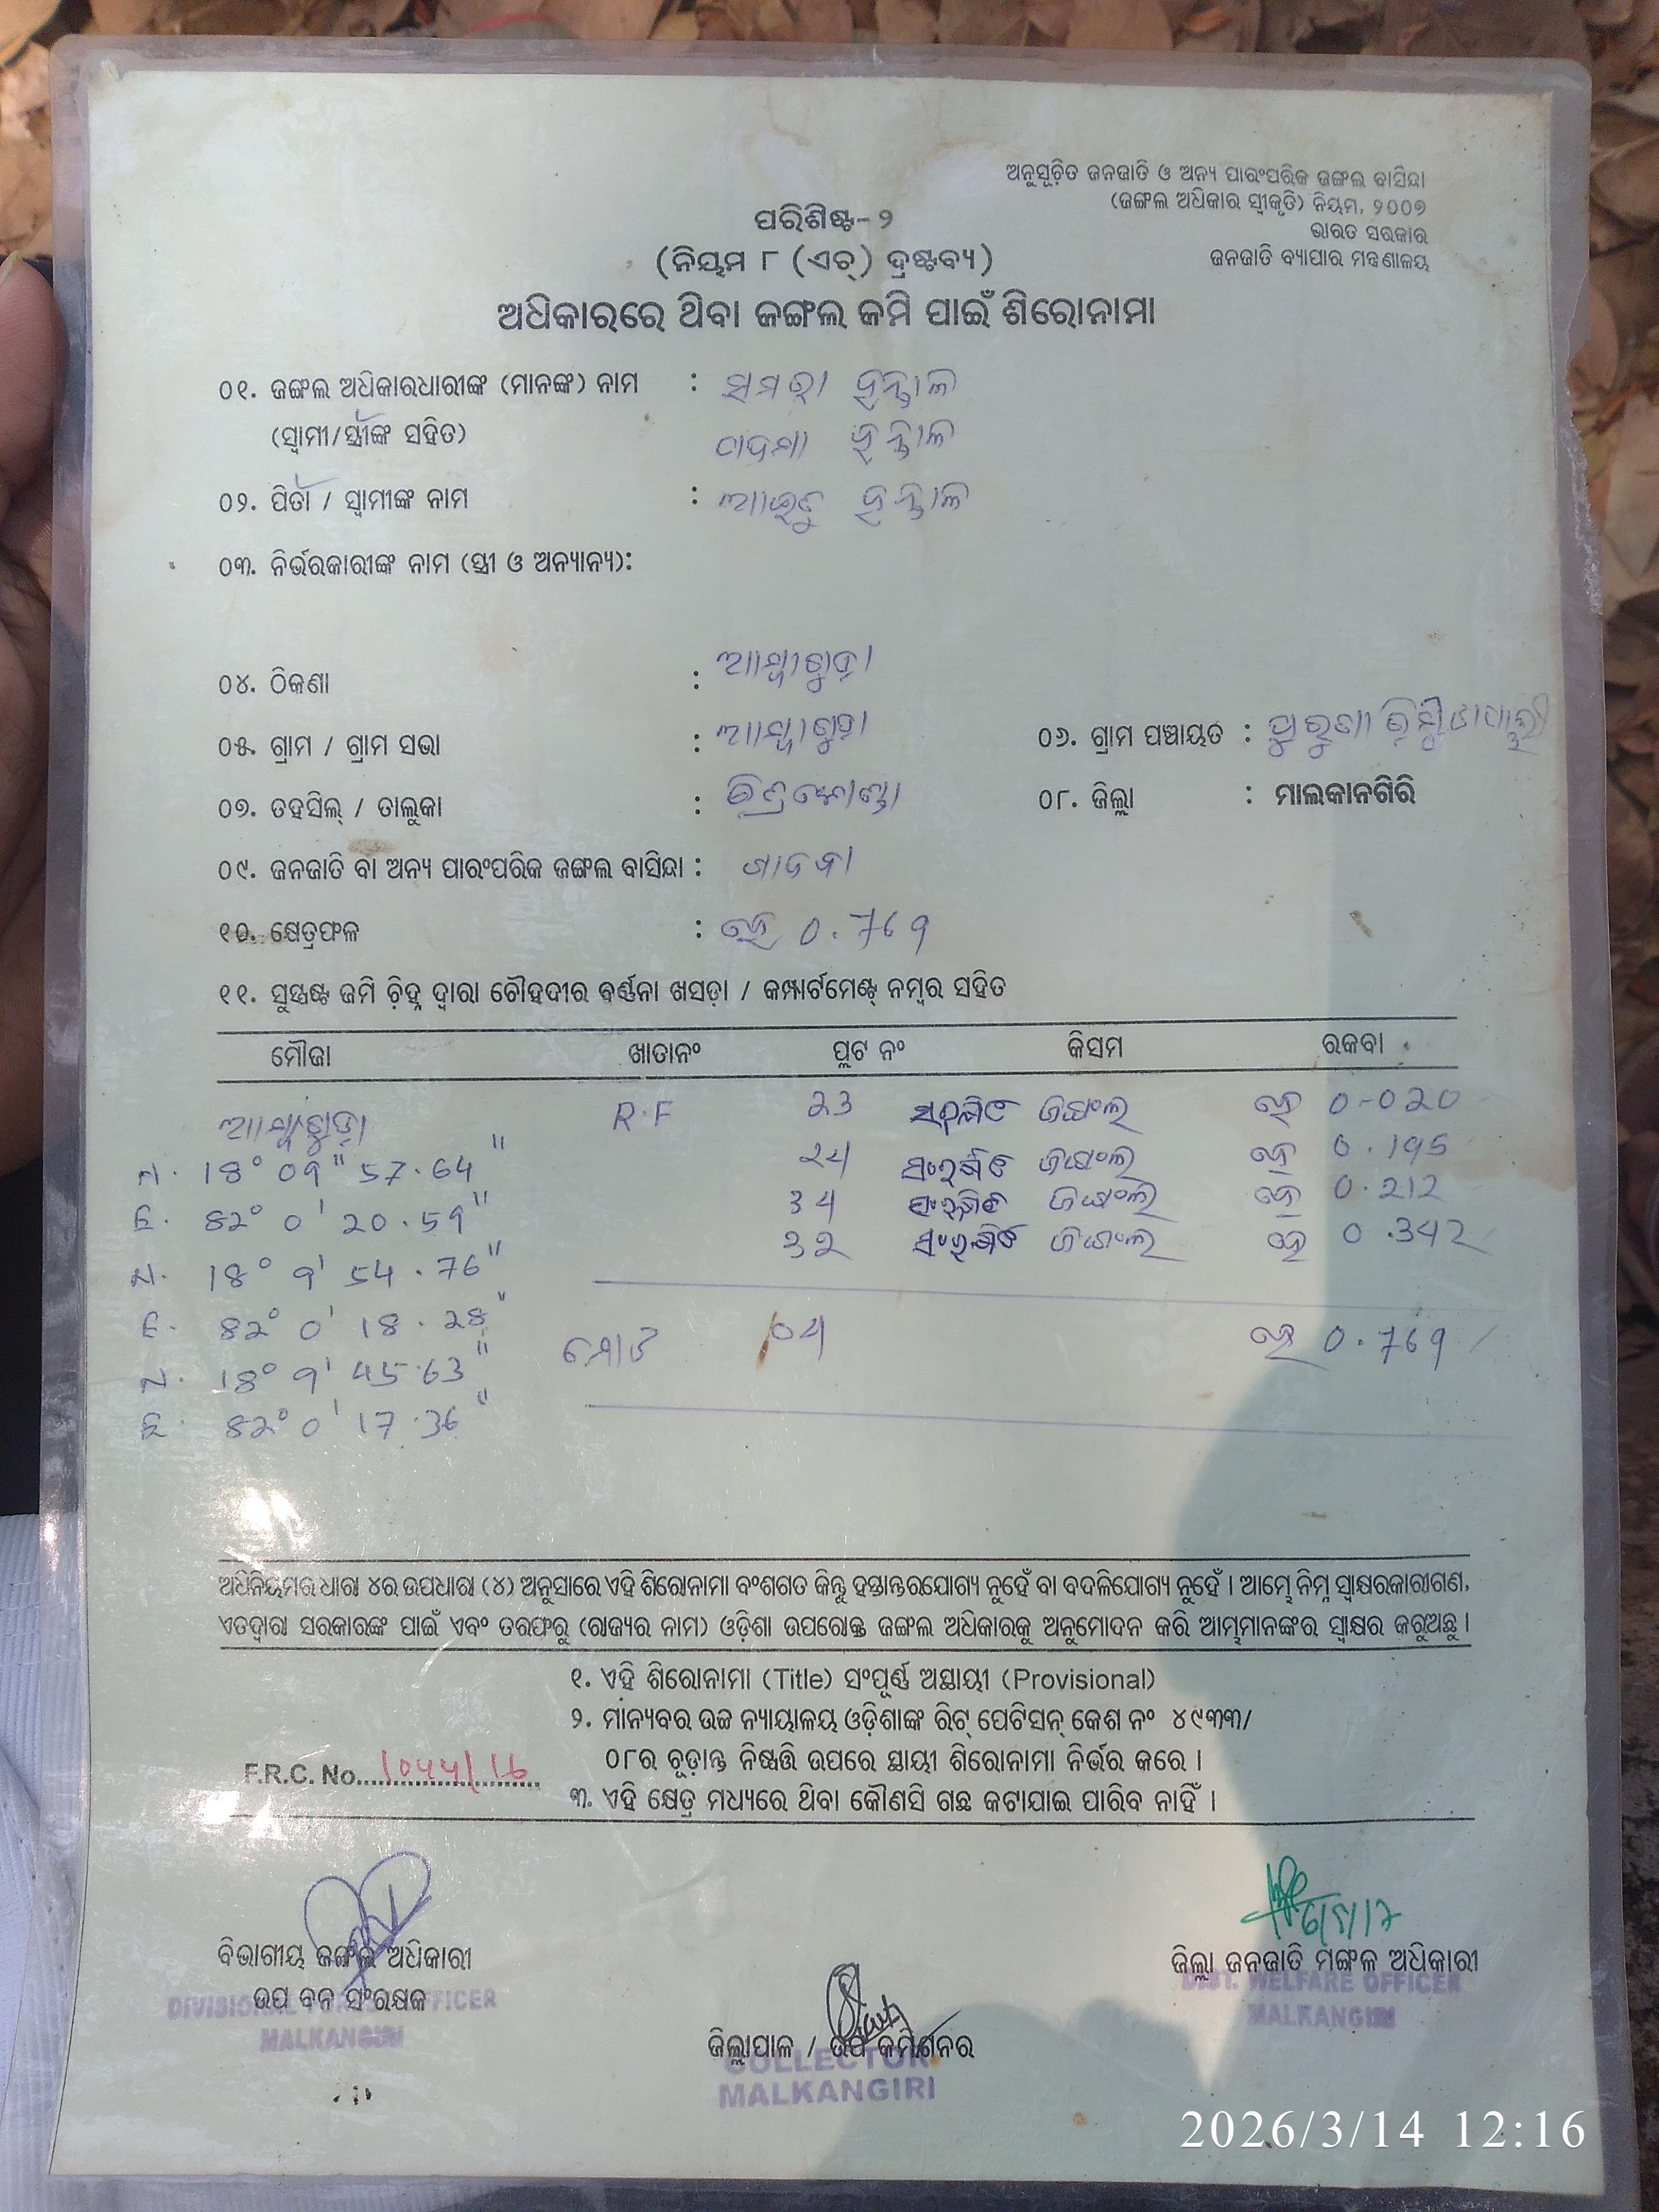 ଅନୁସୂଚିତ ଜନଜାତି ଓ ଅନ୍ୟ ପାରଂପରିକ ଜଙ୍ଗଲ ବାସିନ୍ଦା
(ଜଙ୍ଗଲ ଅଧିକାର ସ୍ୱୀକୃତି) ନିୟମ, ୨୦୦୭
ଭାରତ ସରକାର
ଜନଜାତି ବ୍ୟାପାର ମନ୍ତ୍ରଣାଳୟ
ପରିଶିଷ୍ଟ-୨
(ନିୟମ ୮ (ଏଚ୍) ଦ୍ରଷ୍ଟବ୍ୟ)
ଅଧିକାରରେ ଥିବା ଜଙ୍ଗଲ ଜମି ପାଇଁ ଶିରୋନାମା
୦୧. ଜଙ୍ଗଲ ଅଧିକାରଧାରୀଙ୍କ (ମାନଙ୍କ) ନାମ : ସମରା ହନ୍ତାଳ
(ସ୍ୱାମୀ/ସ୍ତ୍ରୀଙ୍କ ସହିତ) ହନ୍ତାଳ
୦୨. ପିତା / ସ୍ୱାମୀଙ୍କ ନାମ : ହନ୍ତାଳ
୦୩. ନିର୍ଭରକାରୀଙ୍କ ନାମ (ସ୍ତ୍ରୀ ଓ ଅନ୍ୟାନ୍ୟ):
୦୪. ଠିକଣା : ଆମ୍ବାଗୁଡ଼ା
୦୫. ଗ୍ରାମ / ଗ୍ରାମ ସଭା : ଆମ୍ବାଗୁଡ଼ା ୦୬. ଗ୍ରାମ ପଞ୍ଚାୟତ :
୦୭. ତହସିଲ୍ / ତାଲୁକା : ଚିତ୍ରକୋଣ୍ଡା ୦୮. ଜିଲ୍ଲା : ମାଲକାନଗିରି
୦୯. ଜନଜାତି ବା ଅନ୍ୟ ପାରଂପରିକ ଜଙ୍ଗଲ ବାସିନ୍ଦା : ଗାଦବା
୧୦. କ୍ଷେତ୍ରଫଳ : ହେ 0.769
୧୧. ସୁସ୍ପଷ୍ଟ ଜମି ଚିହ୍ନ ଦ୍ୱାରା ଚୌହଦୀର ବର୍ଣ୍ଣନା ଖସଡ଼ା / କମ୍ପାର୍ଟମେଣ୍ଟ୍ ନମ୍ବର ସହିତ
ମୌଜା ଖାତାନଂ ପ୍ଲଟ ନଂ କିସମ ରକବା
ଆମ୍ବାଗୁଡ଼ା R.F 23 ସଂରକ୍ଷିତ ଜଙ୍ଗଲ ହେ 0-020
N. 18° 09" 57.64" 24 ସଂରକ୍ଷିତ ଜଙ୍ଗଲ ହେ 0.195
E. 82° 0' 20.59" 34 ସଂରକ୍ଷିତ ଜଙ୍ଗଲ ହେ 0.212
N. 18° 9' 54.76" 32 ସଂରକ୍ଷିତ ଜଙ୍ଗଲ ହେ 0.342
E. 82° 0' 18.28" ମୋଟ 04 ହେ 0.769
N. 18° 9' 45.63"
E. 82° 0' 17.36"
ଅଧିନିୟମର ଧାରା ୪ର ଉପଧାରା (୪) ଅନୁସାରେ ଏହି ଶିରୋନାମା ବଂଶଗତ କିନ୍ତୁ ହସ୍ତାନ୍ତରଯୋଗ୍ୟ ନୁହେଁ ବା ବଦଳିଯୋଗ୍ୟ ନୁହେଁ । ଆମ୍ଭେ ନିମ୍ନ ସ୍ୱାକ୍ଷରକାରୀଗଣ,
ଏତଦ୍ୱାରା ସରକାରଙ୍କ ପାଇଁ ଏବଂ ତରଫରୁ (ରାଜ୍ୟର ନାମ) ଓଡ଼ିଶା ଉପରୋକ୍ତ ଜଙ୍ଗଲ ଅଧିକାରକୁ ଅନୁମୋଦନ କରି ଆମ୍ଭମାନଙ୍କର ସ୍ୱାକ୍ଷର କରୁଅଛୁ ।
୧. ଏହି ଶିରୋନାମା (Title) ସଂପୂର୍ଣ୍ଣ ଅସ୍ଥାୟୀ (Provisional)
୨. ମାନ୍ୟବର ଉଚ୍ଚ ନ୍ୟାୟାଳୟ ଓଡ଼ିଶାଙ୍କ ରିଟ୍ ପେଟିସନ୍ କେଶ ନଂ ୪୯୩୩/
୦୮ର ଚୂଡ଼ାନ୍ତ ନିଷ୍ପତ୍ତି ଉପରେ ସ୍ଥାୟୀ ଶିରୋନାମା ନିର୍ଭର କରେ ।
F.R.C. No. 1044/16
୩. ଏହି କ୍ଷେତ୍ର ମଧ୍ୟରେ ଥିବା କୌଣସି ଗଛ କଟାଯାଇ ପାରିବ ନାହିଁ ।
ବିଭାଗୀୟ ଜଙ୍ଗଲ ଅଧିକାରୀ
ଉପ ବନ ସଂରକ୍ଷକ
DIVISIONAL FOREST OFFICER
MALKANGIRI
ଜିଲ୍ଲାପାଳ / ଉପ କମିଶନର
COLLECTOR
MALKANGIRI
ଜିଲ୍ଲା ଜନଜାତି ମଙ୍ଗଳ ଅଧିକାରୀ
DIST. WELFARE OFFICER
MALKANGIRI
2026/3/14 12:16